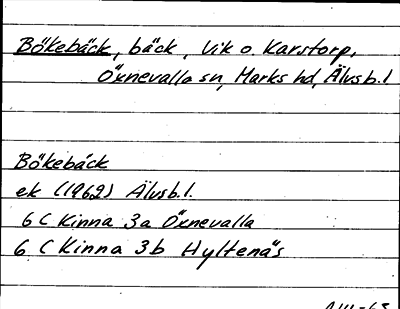 Bökebäck, bäck, Vik o Karstorp,
Öxnevalla sn, Marks hd, Älvsb.l
Bökebäck
ek (1962) Älvsb.l.
6 C Kinna 3a Öxnevalla
6 C Kinna 3b Hyltenäs